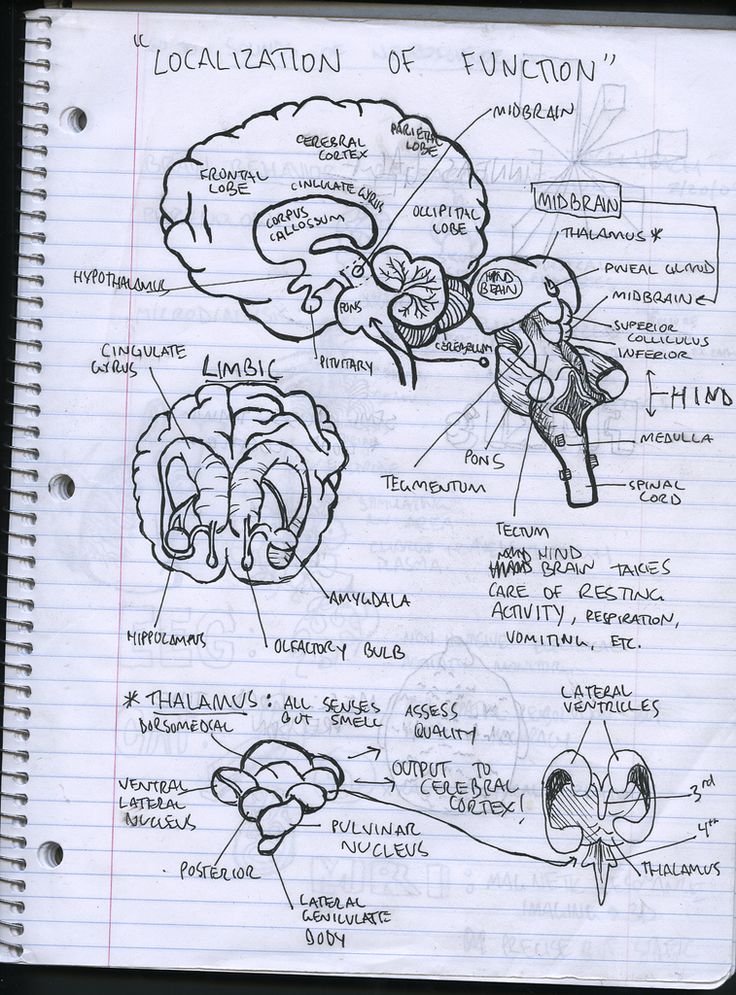 "LOCALIZATION OF FUNCTION"
MIDBRAIN
PARIETAL
LOBE
CEREBRAL
CORTEX
FRONTAL
LOBE
CINGULATE GYRUS
CORPUS
CALLOSUM
OLLIPITAL
LOBE
MIDBRAIN
THALAMUS *
HYPOTHALAMUS
PONS
HIND
BRAIN
PINEAL GLAND
MIDBRAIN
SUPERIOR
COLLICULUS
INFERIOR
PITUITARY
CEREBELLUM
CINGULATE
GYRUS
LIMBIC
HIND
MEDULLA
PONS
TEGMENTUM
SPINAL
CORD
TECTUM
HIND
BRAIN TAKES
CARE OF RESTING
ACTIVITY, RESPIRATION,
VOMITING, ETC.
AMYGDALA
HIPPOCAMPUS
OLFACTORY BULB
* THALAMUS: ALL SENSES
BUT SMELL
DORSOMEDIAL
ASSESS
QUALITY
LATERAL
VENTRICLES
VENTRAL
LATERAL
NUCLEUS
OUTPUT TO
CEREBRAL
CORTEX!
3rd
4th
PULVINAR
NUCLEUS
THALAMUS
POSTERIOR
LATERAL
GENICULATE
BODY